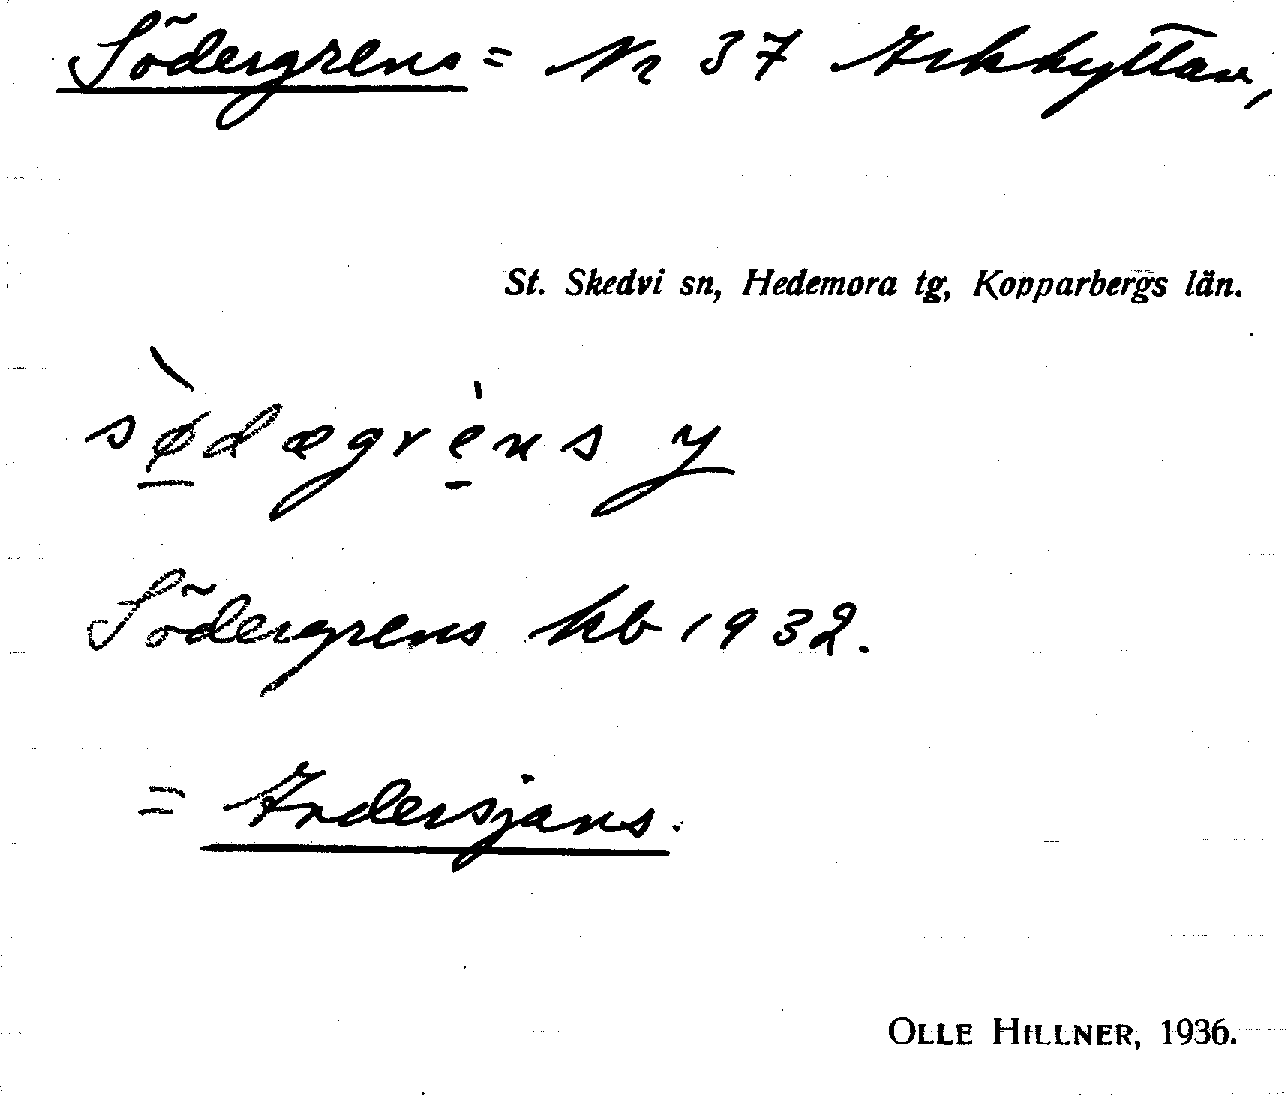 Södergrens = Nr 37 Arkhyttan,
St. Skedvi sn, Hedemora tg, Kopparbergs län.
sø̀dægrèns y
Södergrens kb 1932.
= Andersjans.
OLLE HILLNER, 1936.